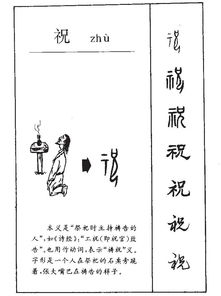 祝 zhù
本义是“祭祀时主持祷告的
人”,如《诗经》:“工祝(即祝官)致
告”。也用作动词,表示“祷祝”义。
字形是一个人在祭祀的石案旁跪
着,张大嘴巴在祷告的样子。
祝
祝
祝
祝
祝
祝
祝